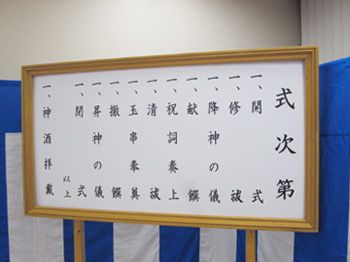 式次第
一、開式
一、修祓
一、降神の儀
一、献饌
一、祝詞奏上
一、清祓
一、玉串奉奠
一、撤饌
一、昇神の儀
一、閉式
以上
一、神酒拝戴